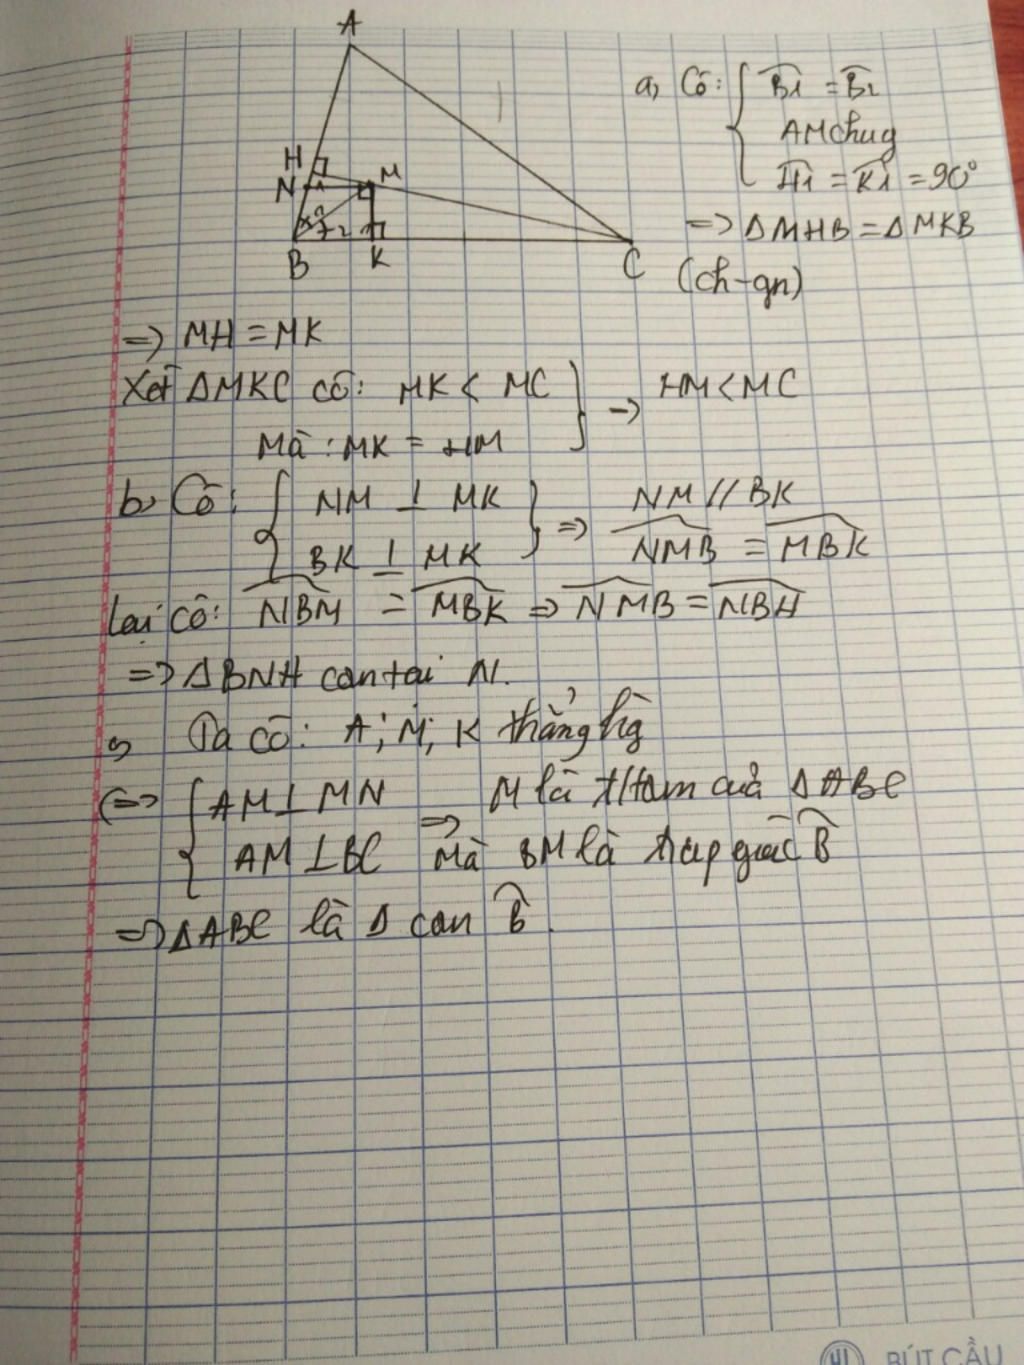 A
H
N
M
B
K
C
a, Có: { B̂1 = B̂2
AM chug
Ĥ1 = K̂1 = 90°
=> ΔMHB = ΔMKB
(ch-gn)
=> MH = MK
Xét ΔMKC có: MK < MC } => HM < MC
Mà: MK = HM
b, Có: { NM ⊥ MK } => NM // BK
BK ⊥ MK NMB = MBK
Lại có: NBM = MBK => NMB = NBH
=> ΔBNH can tai N.
Ta có: A; M; K thẳng hg
<=> { AM ⊥ MN M là t/tam của ΔABC
AM ⊥ BC => Mà BM là giác B̂
=> ΔABC là Δ can B̂.
BÚT CẦU